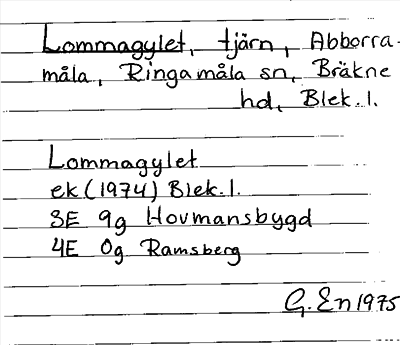 Lommagylet, tjärn, Abborra-
måla, Ringamåla sn, Bräkne
hd, Blek.l.
Lommagylet
ek (1974) Blek.l.
3E 9g Hovmansbygd
4E 0g Ramsberg
G. En 1975